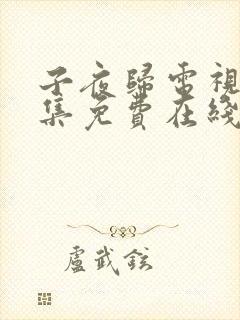 子夜歸電視
集免費在綫
盧武鉉